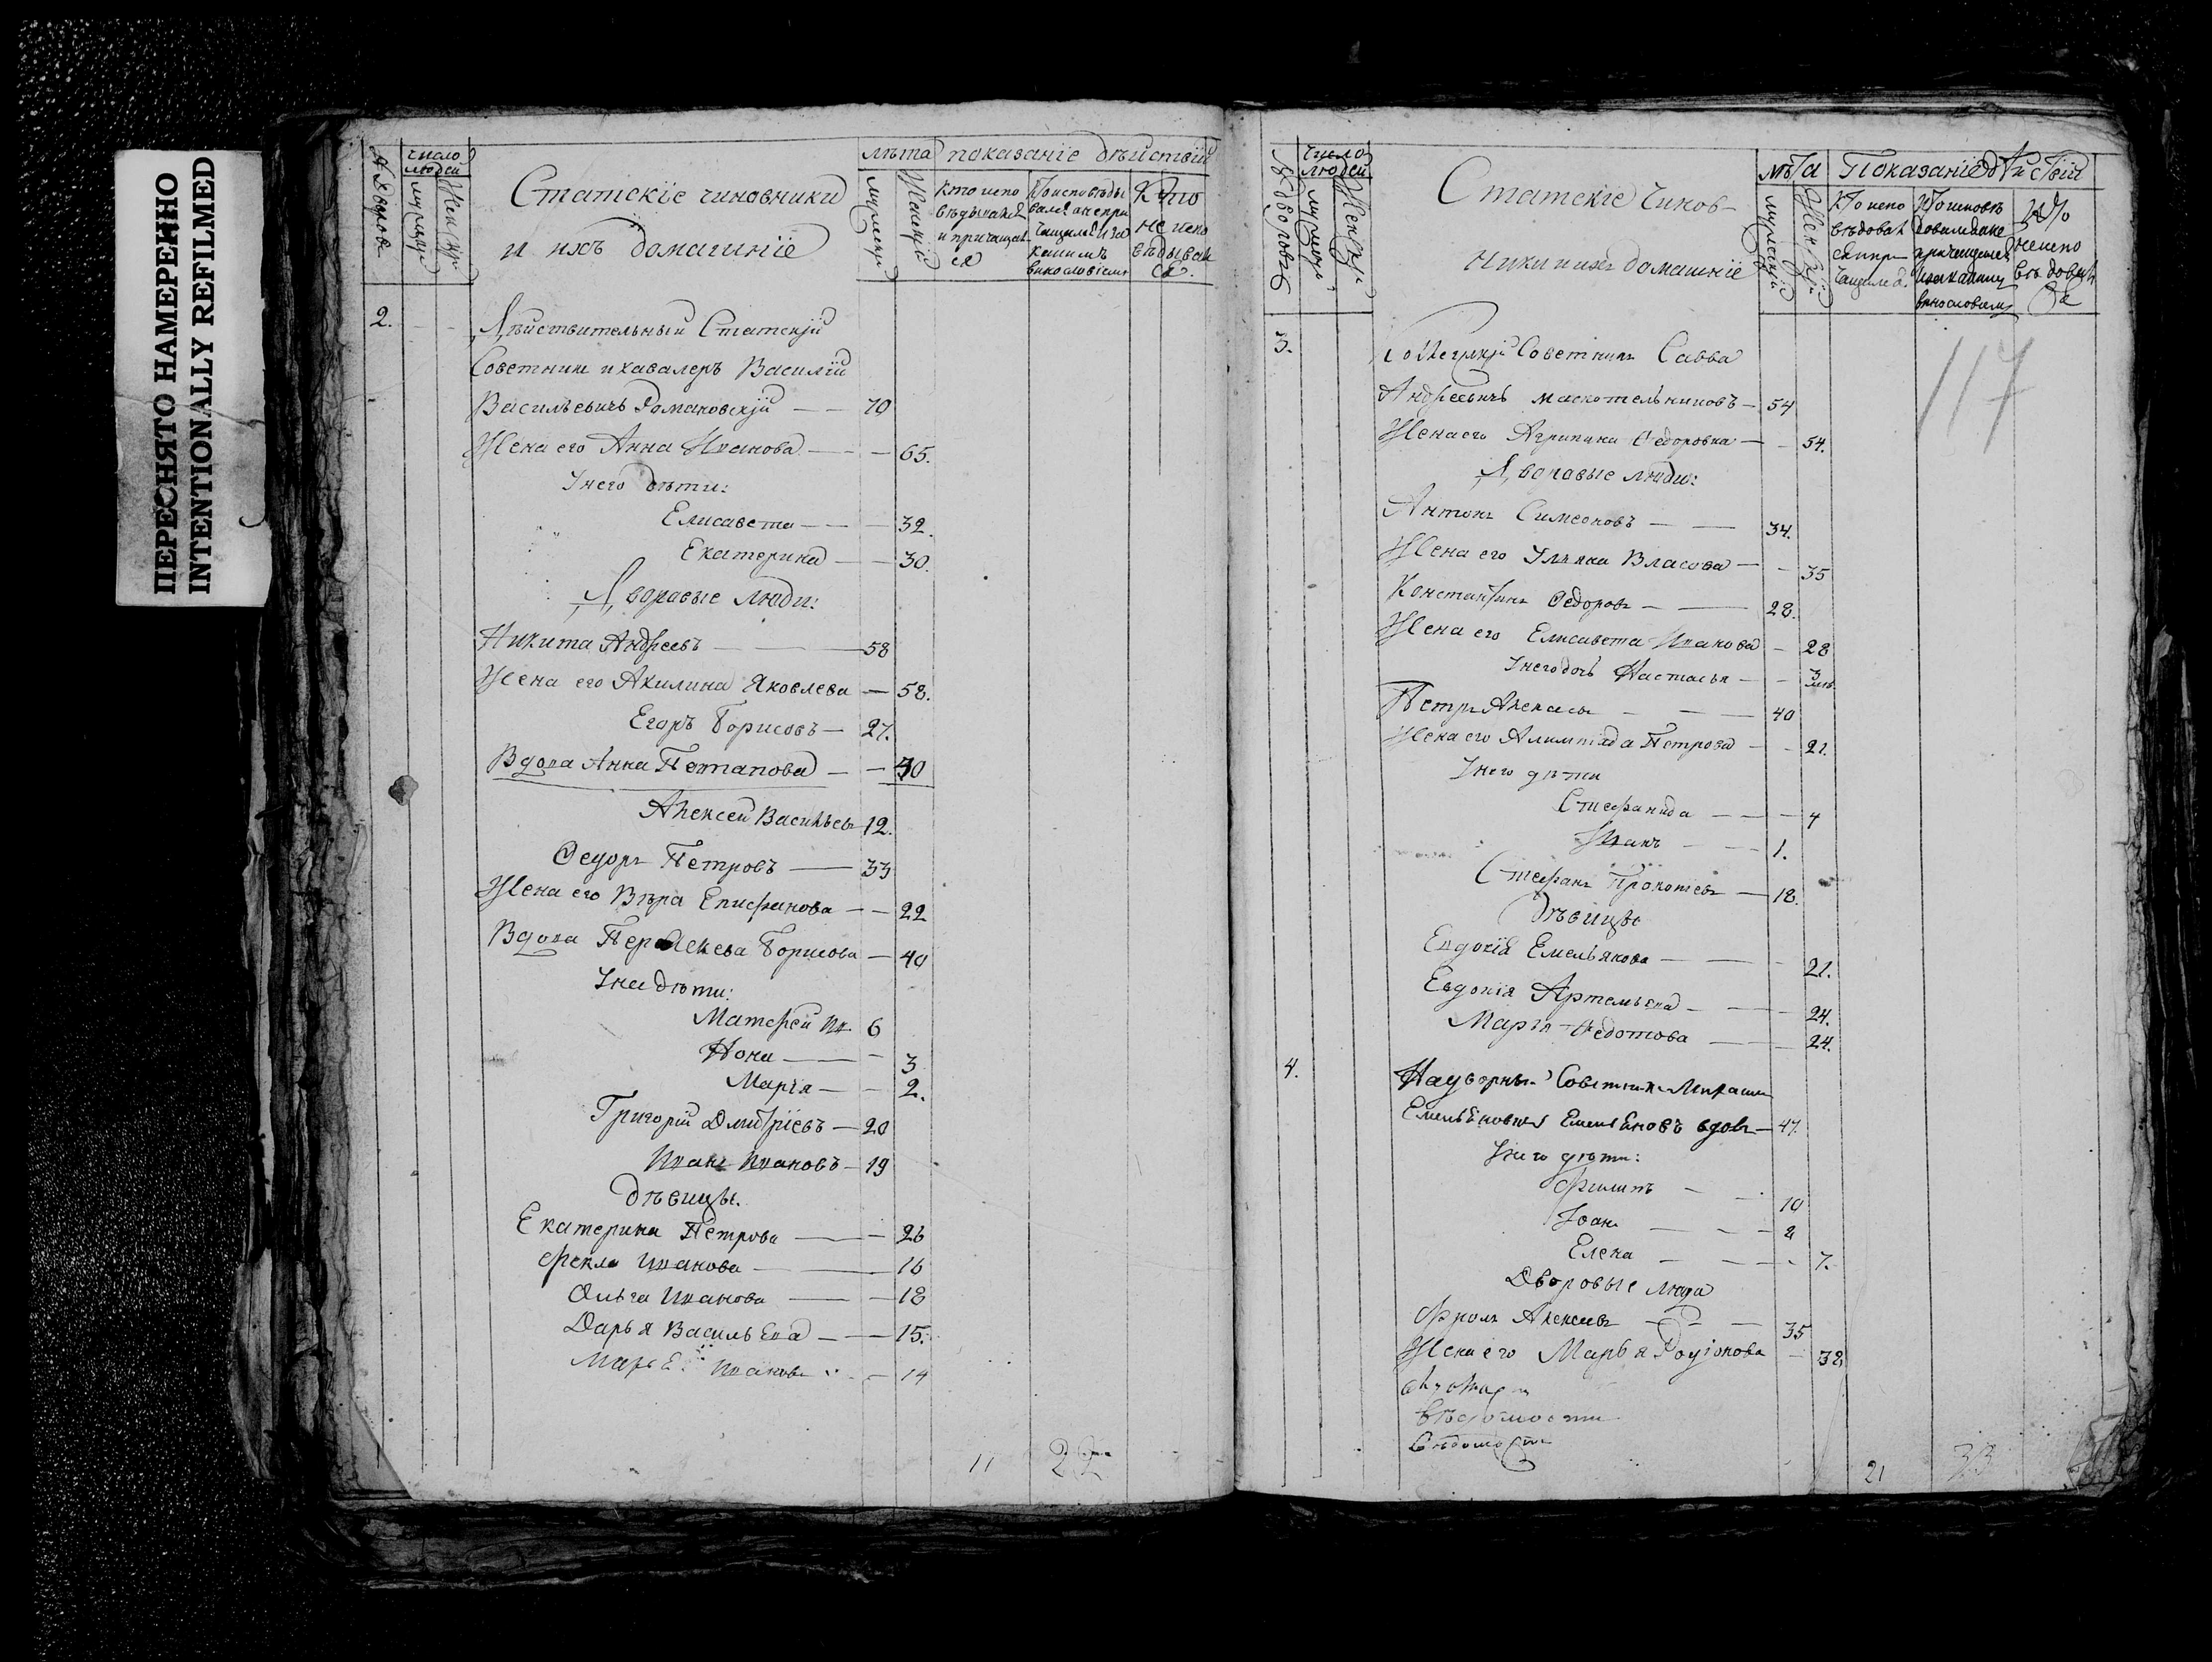 ПЕРЕСНЯТО НАМЕРЕННО
INTENTIONALLY REFILMED
№ Дворовъ
число людей
мужеск
Женскр
Статскіе чиновники
и ихъ домашніе
лѣта
показаніе дѣйствій
мужеску
Женскій
Кто испо
вѣдывался
и причащал
ся
Кто
не испо
вѣдывал
ся.
2.
Дѣйствительный Статскій
Советникъ и кавалеръ Василій
Васильевичъ Романовскій — — 70
Жена его Анна Иванова — — — 65.
У него дѣти:
Елисавета — — 32.
Екатерина — — 30.
Дворовые люди:
Никита Андреевъ — — 58
Жена его Акилина Яковлева — 58.
Егоръ Борисовъ — 27.
Вдова Анна Потапова — — 30
Алексей Васильевъ 12.
Ѳедоръ Петровъ — 33
Жена его Вѣра Епифанова — — 22
Вдова Борисова — 40
У нее дѣти:
Матфей Ив. 6
3
Марья — — 2.
Григорій Дмитріевъ — 20
Иванъ Ивановъ — 19
Дѣвицы.
Екатерина Петрова — — 26
Фекла Иванова — — 16
Ольга Иванова — — 18
Дарья Васильева — — 15.
Марья Иванова — 14
11 22
число людей
Женску
Статскіе Чинов-
ники и ихъ домашніе
лѣта
Показаніе дѣйствій
мужескій
Женскій
Кто испо
вѣдовал
ся и при
чащался.
Кто
не испо
вѣдовал
ся
117
3.
Коллежскій Советникъ Савва
Андреевичъ Москотельниковъ — 54
Жена его Агрипина Ѳедоровна — 54.
Дворовые люди:
Антонъ Симеоновъ — — 34.
Жена его Ульяна Власова — — 35
Константинъ Ѳедоровъ — — 28.
Жена его Елисавета Иванова — 28
У него дочь Настасья — — 3
Петръ Алексеевъ — — — 40
Жена его Алимпіада Петрова — — 21.
У него дѣти
Стефанида — — — 4
Иванъ — — 1.
Стефанъ Прокопьевъ — 18.
Дѣвицы
Евдокія Емельянова — — 21.
Евдокія Артемьева — — 24.
Марья Ѳедотова — — 24.
4.
Надворный Советникъ
Емельяновичъ Емельяновъ вдовъ — 47.
У него дѣти:
Филипъ — — 10
Іоанъ — — — 8
Елена — — — 7.
Дворовые люди
Фролъ Алексеевъ — — — 35
Жена его Марья Родіонова — 38
вѣдомости
21 33